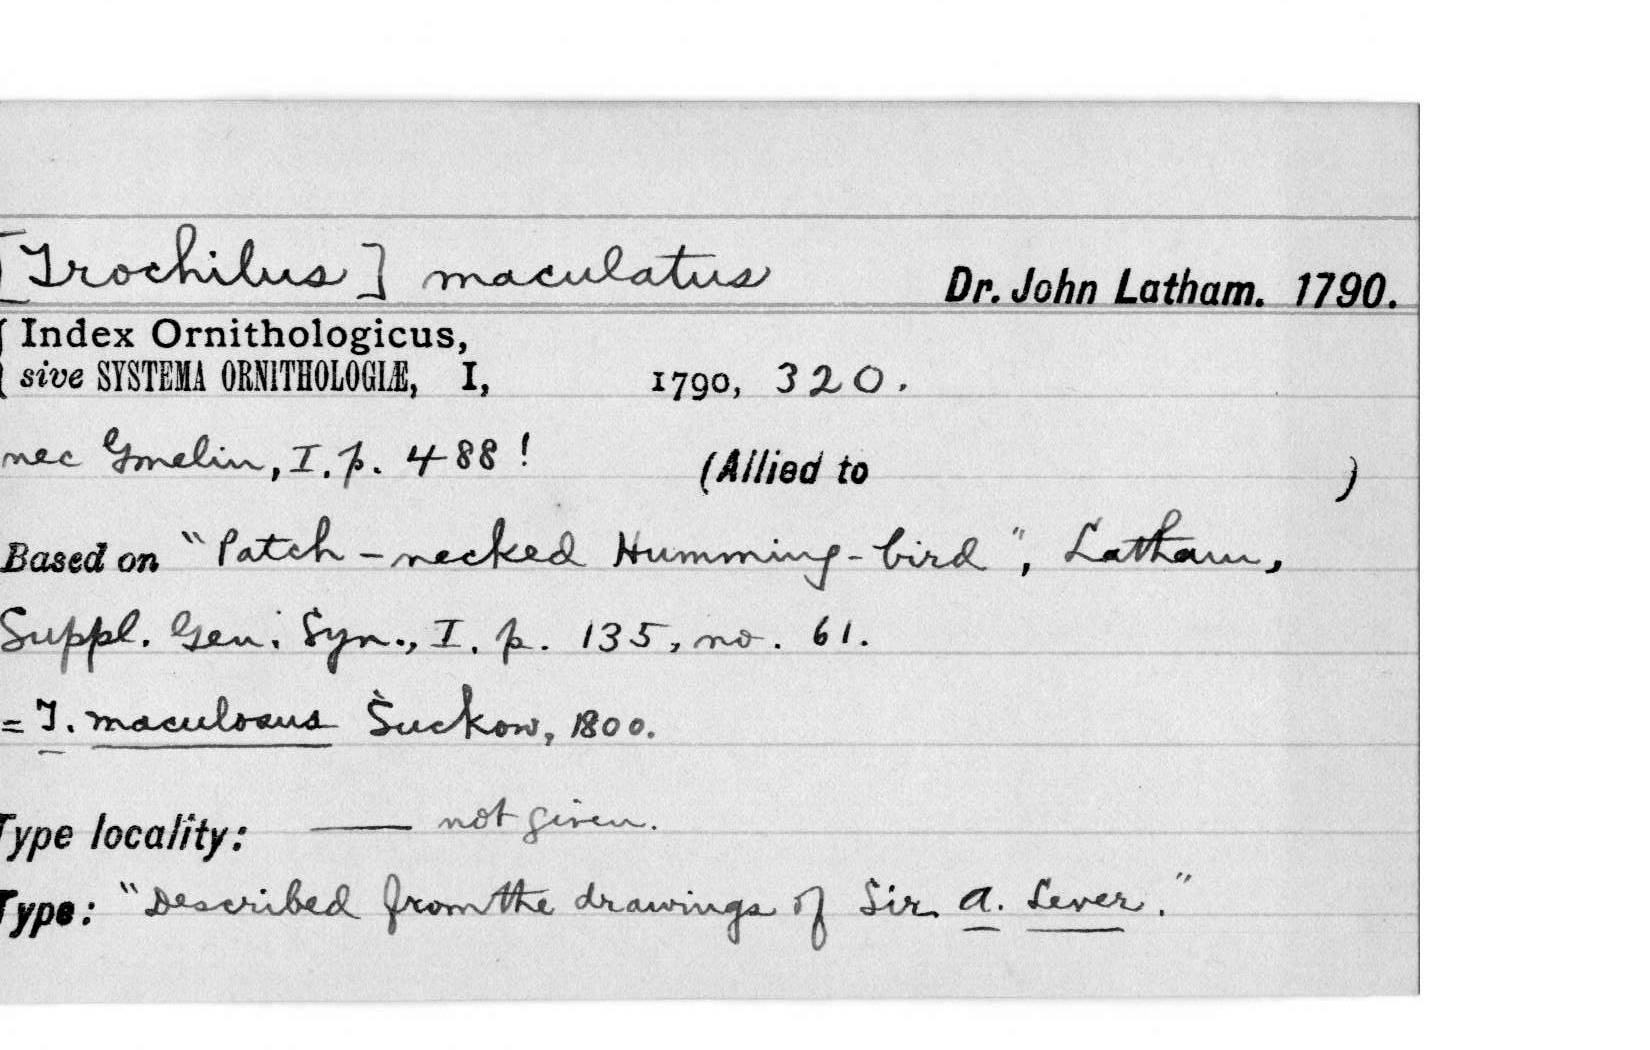 [Trochilus] maculatus Dr. John Latham. 1790.
Index Ornithologicus,
sive SYSTEMA ORNITHOLOGIÆ, I, 1790, 320.
nec Gmelin, I. p. 488! (Allied to )
Based on "Patch-necked Humming-bird", Latham,
Suppl. Gen. Syn., I. p. 135, no. 61.
= T. maculosus Suckow, 1800.
Type locality: —— not given.
Type: "Described from the drawings of Sir. A. Lever."